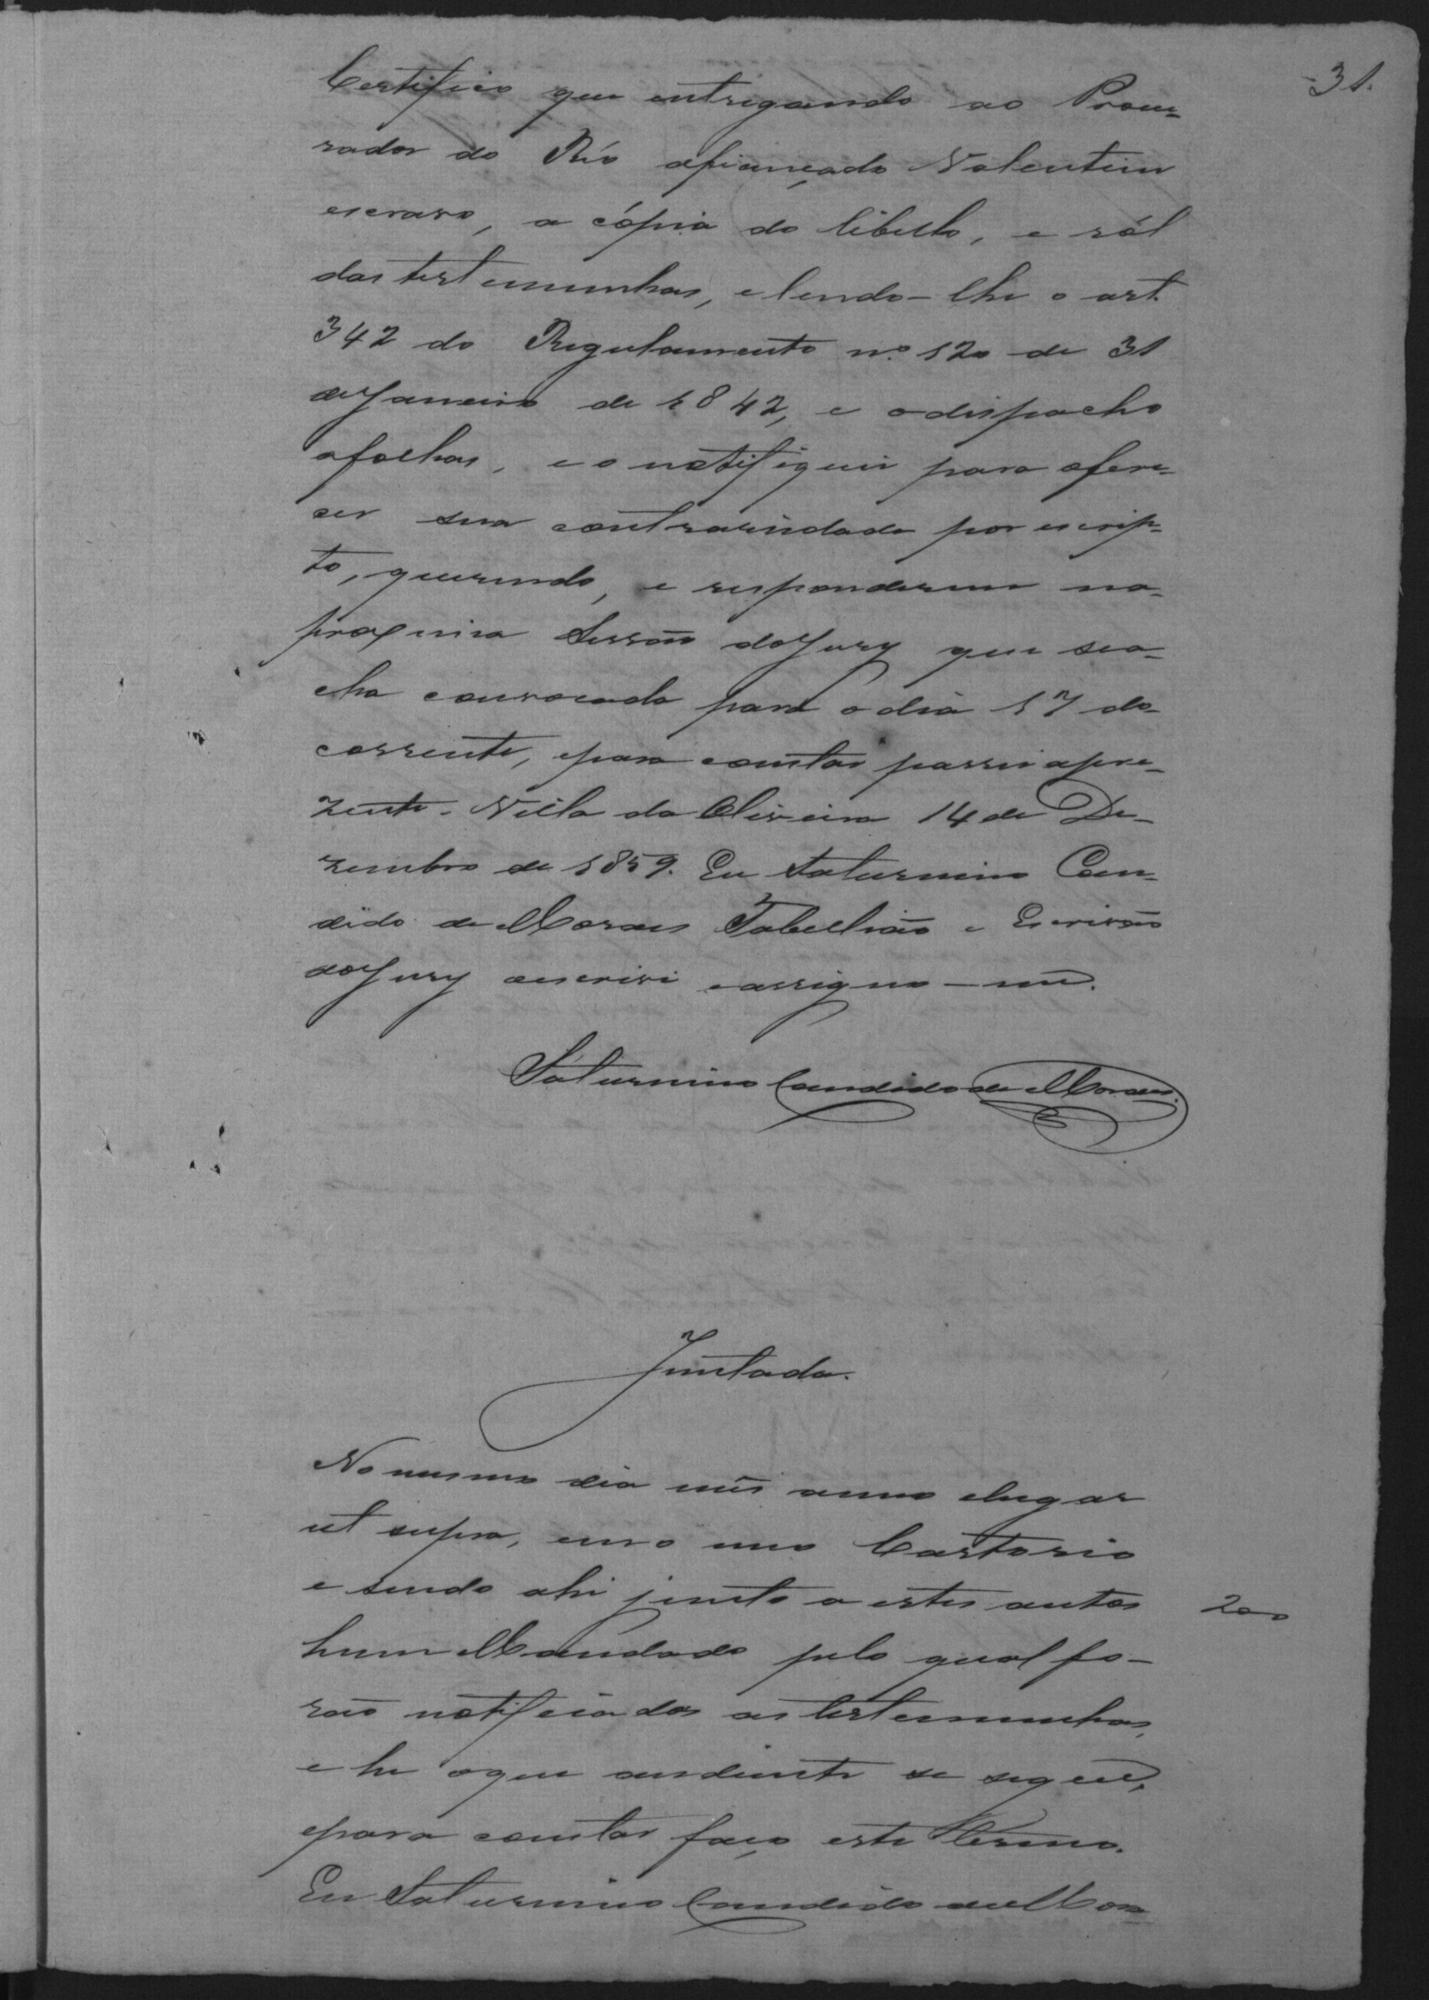 31.
Certifico que entregando ao Procu-
rador do Réo afiançado Valentim
escravo, a cópia do libello, e ról
das testemunhas, e lendo-lhe o art.
342 do Regulamento nº 120 de 31
deJaneiro de 1842, e odespacho
afolhas, e o notifiquei para ofere-
cer sua contrariedade por escrip-
to, querendo, e responderem na
proxima Sessão doJury que sea-
cha convocada para o dia 17 do
corrente, epara constar passei apre-
zente. Villa da Oliveira 14 de De-
zembro de 1859. Eu Saturnino Can-
dido de Moraes Tabellião e Escrivão
doJury oescrivi eassigno-me.
Saturnino Candido de Moraes.
Juntada.
No mesmo dia mês anno elugar
ut supra, em o meo Cartorio
e sendo ahi junto a estes autos
200
hum Mandado pelo qual fo-
rão notificadas as testemunhas,
e he oque aodiante se segue,
epara constar faço este Termo.
Eu Saturnino Candido deMora